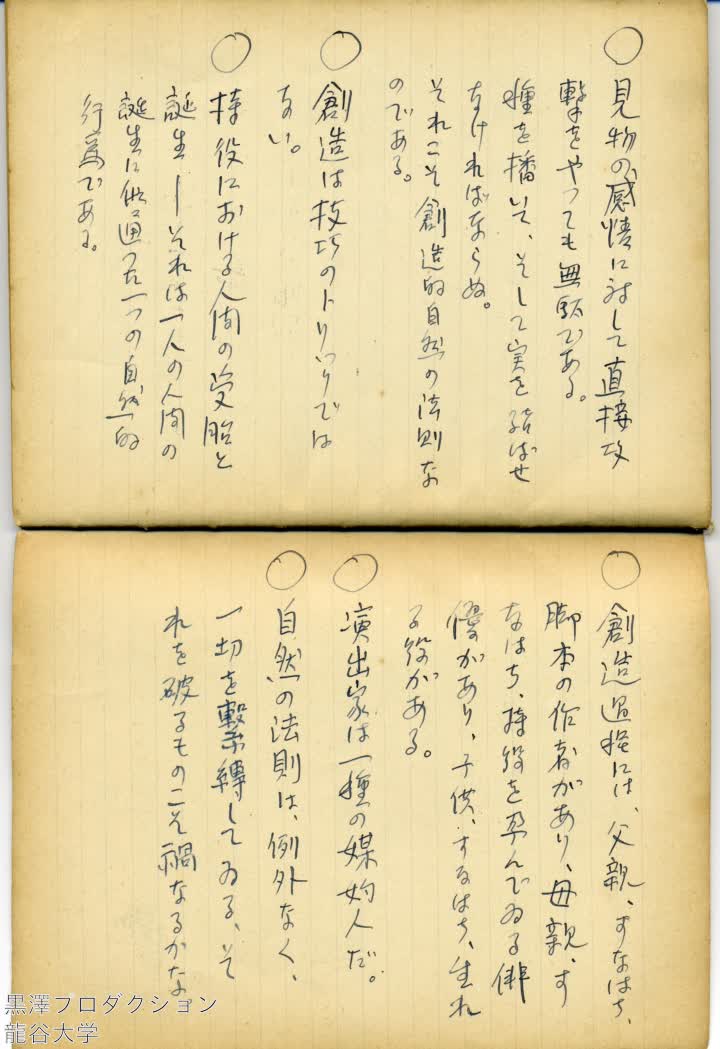 ○ 見物の感情に対して直接攻
撃をやっても無駄である。
種を播いて、そして実を結ばせ
なければならぬ。
それこそ創造的自然の法則な
のである。
○ 創造は技巧のトリックでは
ない。
○ 持役における人間の受胎と
誕生ーそれは一人の人間の
誕生に似通った一つの自然的
行為である。
○ 創造過程には、父親、すなはち、
脚本の作者があり、母親、す
なはち、持役を孕んでゐる俳
優があり、子供、すなはち、生れ
る役がある。
○ 演出家は一種の媒妁人だ。
○ 自然の法則は、例外なく、
一切を繋縛してゐる、そ
れを破るものこそ禍なるかな
黒澤プロダクション
龍谷大学